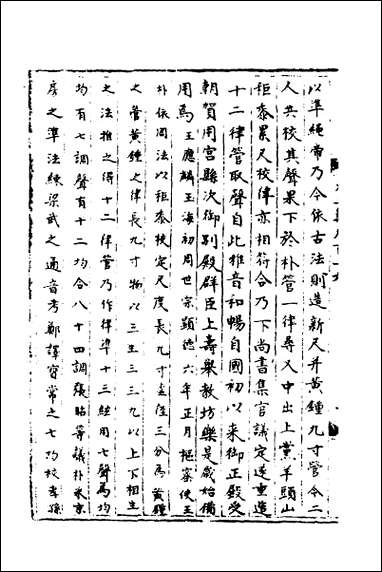 以準繩常乃令依古法別造新尺并黃鍾九寸管令二
人共校其聲果下於朴管一律尋又中出上黨羊頭山
秬黍累尺校律亦相符合乃下尚書集官議定遂重造
十二律管取聲自此雅音和暢自國初以來御正殿受
朝賀用宮縣次御別殿群臣上壽舉教坊樂是歲始備
用焉王應麟玉海初周世宗顯德六年正月樞密使王
朴依周法以秬黍校定尺度長九寸虛徑三分為黃鍾
之管黃鍾之律長九寸物以三生三三九以上下相生
之法推之得十二律管乃作律準十三絃用七聲為均
均有七調聲有十二均合八十四調張昭等議朴采京
房之準法練梁武之通音考鄭譯寶常之七均校孝孫